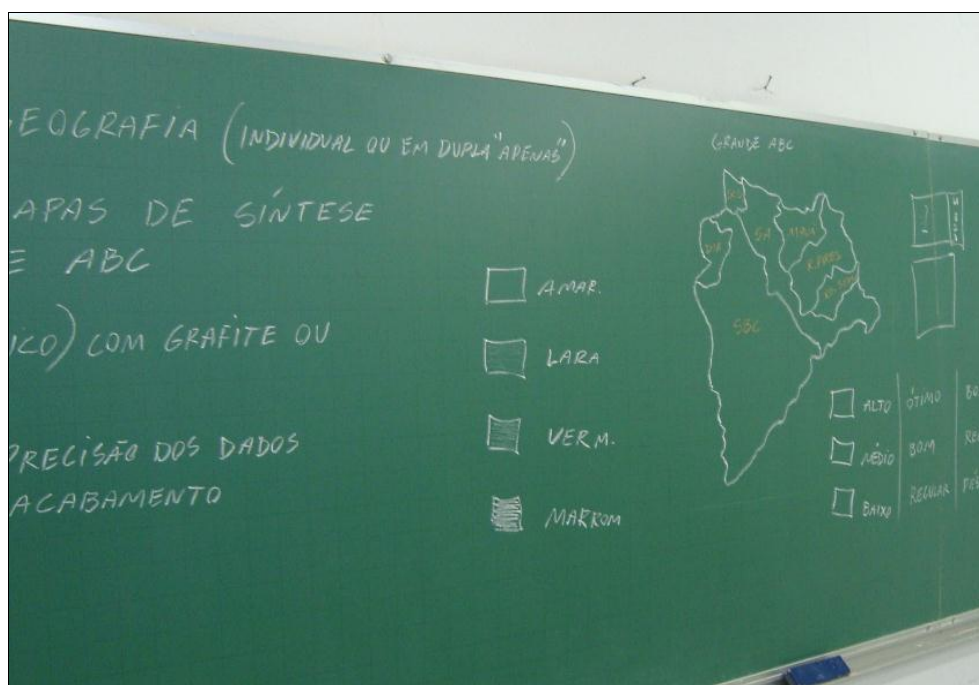 EOGRAFIA (INDIVIDUAL OU EM DUPLA "APENAS")
APAS DE SÍNTESE
E ABC
ICO) COM GRAFITE OU
PRECISÃO DOS DADOS
ACABAMENTO
AMAR.
LARA
VERM.
MARROM
GRANDE ABC
SA
MAUÁ
R. PIRES
SBC
?
ALTO ÓTIMO BO
MÉDIO BOM RE
BAIXO REGULAR